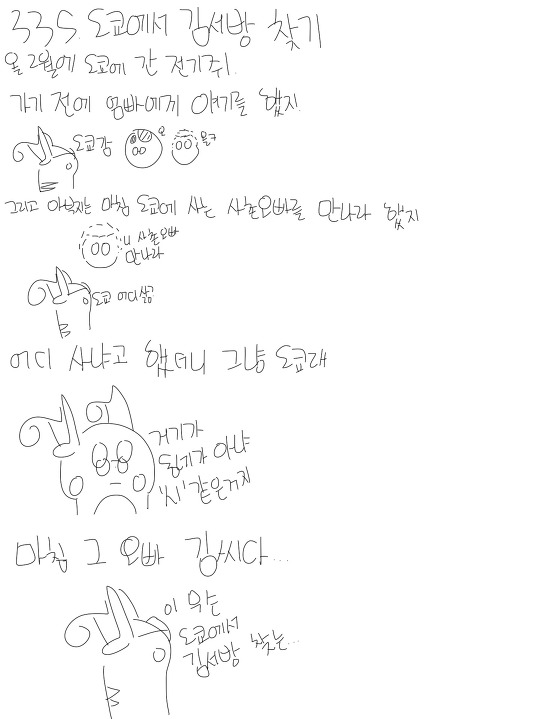 335. 도쿄에서 김서방 찾기
올 2월에 도쿄에 간 전기쥐.
가기 전에 엄빠에게 얘기를 했지.
도쿄감
오
올ㅋ
그리고 아부지는 마침 도쿄에 사는 사촌오빠를 만나라 했지
니 사촌오빠
만나라
도쿄 어디삶?
어디 사냐고 했더니 그냥 도쿄래
거기가
읍내가 아냐
'시' 같은거지
마침 그 오빠 김씨다...
이 무슨
도쿄에서
김서방 찾는...